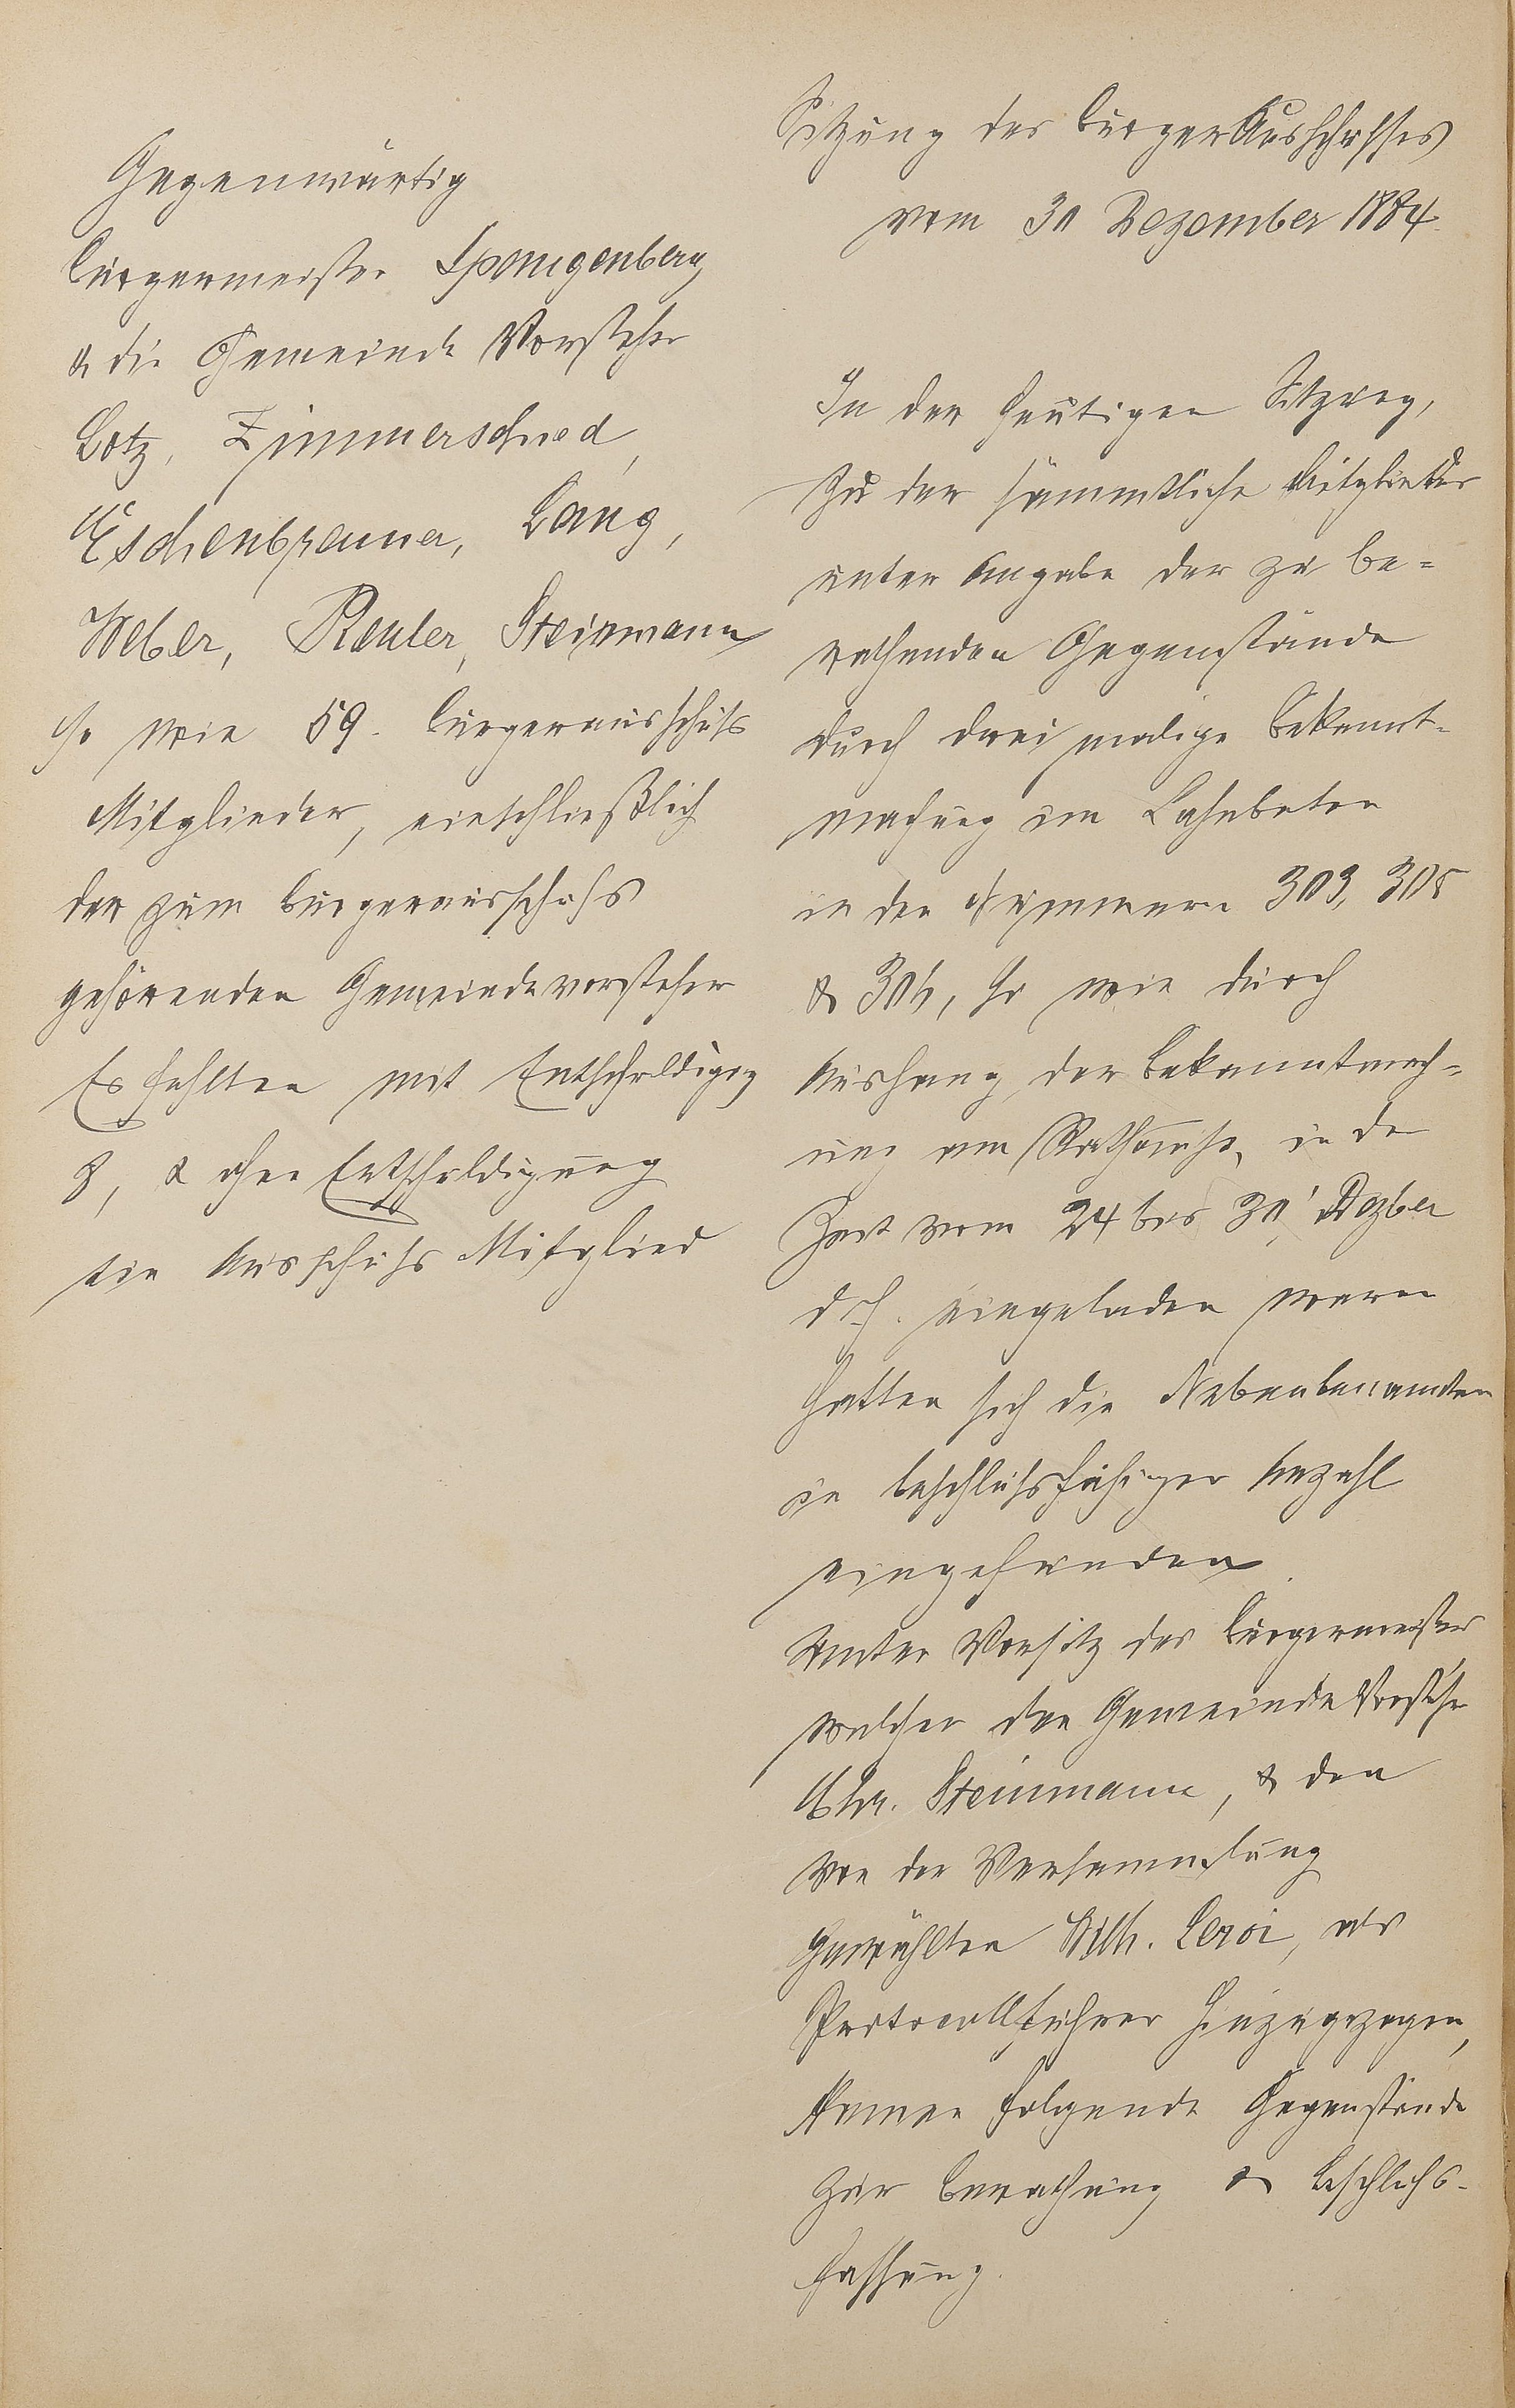 Gegenwärtig
Bürgermeister Spangenberg
& die Gemeinde Vorsteher
Lotz, Zimmerschied,
Eschenbrenner, Lang,
Weber, Reuter, Steinmann
so wie 59. Bürgerausschuß
Mitglieder, einschließlich
der zum Bürgerausschuß
gehörenden Gemeindevorsteher
Es fehlten mit Entschuldigung
8, & ohne Entschuldigung
ein Ausschuß Mitglied
Sitzung des Bürger Ausschusses
vom 31 Dezember 1884.
In der heutigen Sitzung,
zu der sämmtliche Mitglieder
unter Angabe der zu be=
rathenden Gegenstände
durch drei malige Bekannt=
machung im Lahnboten
in den Nummern 303, 305
& 306, so wie durch
Aushang der Bekanntmach=
ung am Rathause, in der
Zeit vom 24 bis 31' Dezber
d. J. eingeladen waren
hatten sich die Nebenbenannten
in beschlußfähiger Anzahl
eingefunden.
Unter Vorsitz des Bürgermeisters
welcher den Gemeinde Vorsteher
Chr. Steinmann, & den
von der Versammlung
Gewählten Wilh. Leroi, als
Protocollführer hinzugezogen,
kamen folgende Gegenstände
zur Berathung & Beschluß=
fassung.